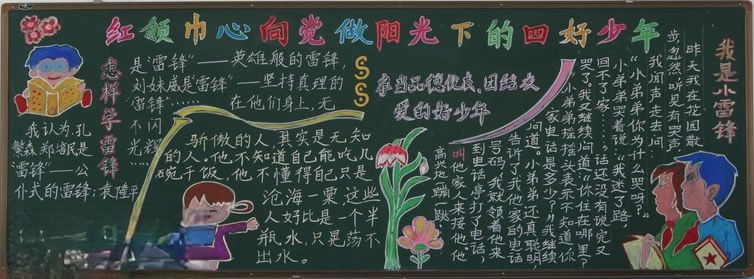 红领巾心向党做阳光下的四好少年
怎样学雷锋
我认为,孔
繁森,郑培民是
"雷锋"——公
仆式的雷锋;袁隆平
是"雷锋"——英雄般的雷锋,
刘姝威是"雷锋"——坚持真理的
"雷锋"……
在他们身上,无
不闪
光辉
骄傲的人,其实是无知
的人。他不知道自己能吃几
碗干饭,他不懂得自己只是
沧海一粟这些
人好比是一个半
瓶水,只晃荡不
出水。
争当品德优良、团结友
爱的好少年
我是小雷锋
昨天我在花园散
步忽然听见有哭声,
我闻声走去问
"小弟弟你为什么哭啊?"
小弟弟哭着说:"我迷了路
回不了家……"话还没有说完又
哭了。我又继续问道"你住在哪里?"
小弟弟摇摇头表示不知道,你
家电话是多少?"我继续
问道小弟弟还真聪明
告诉了我他家的电话
号码,我就领着他来
到电话亭打了电话,
叫他家人来接他,他
高兴地蹦一跳